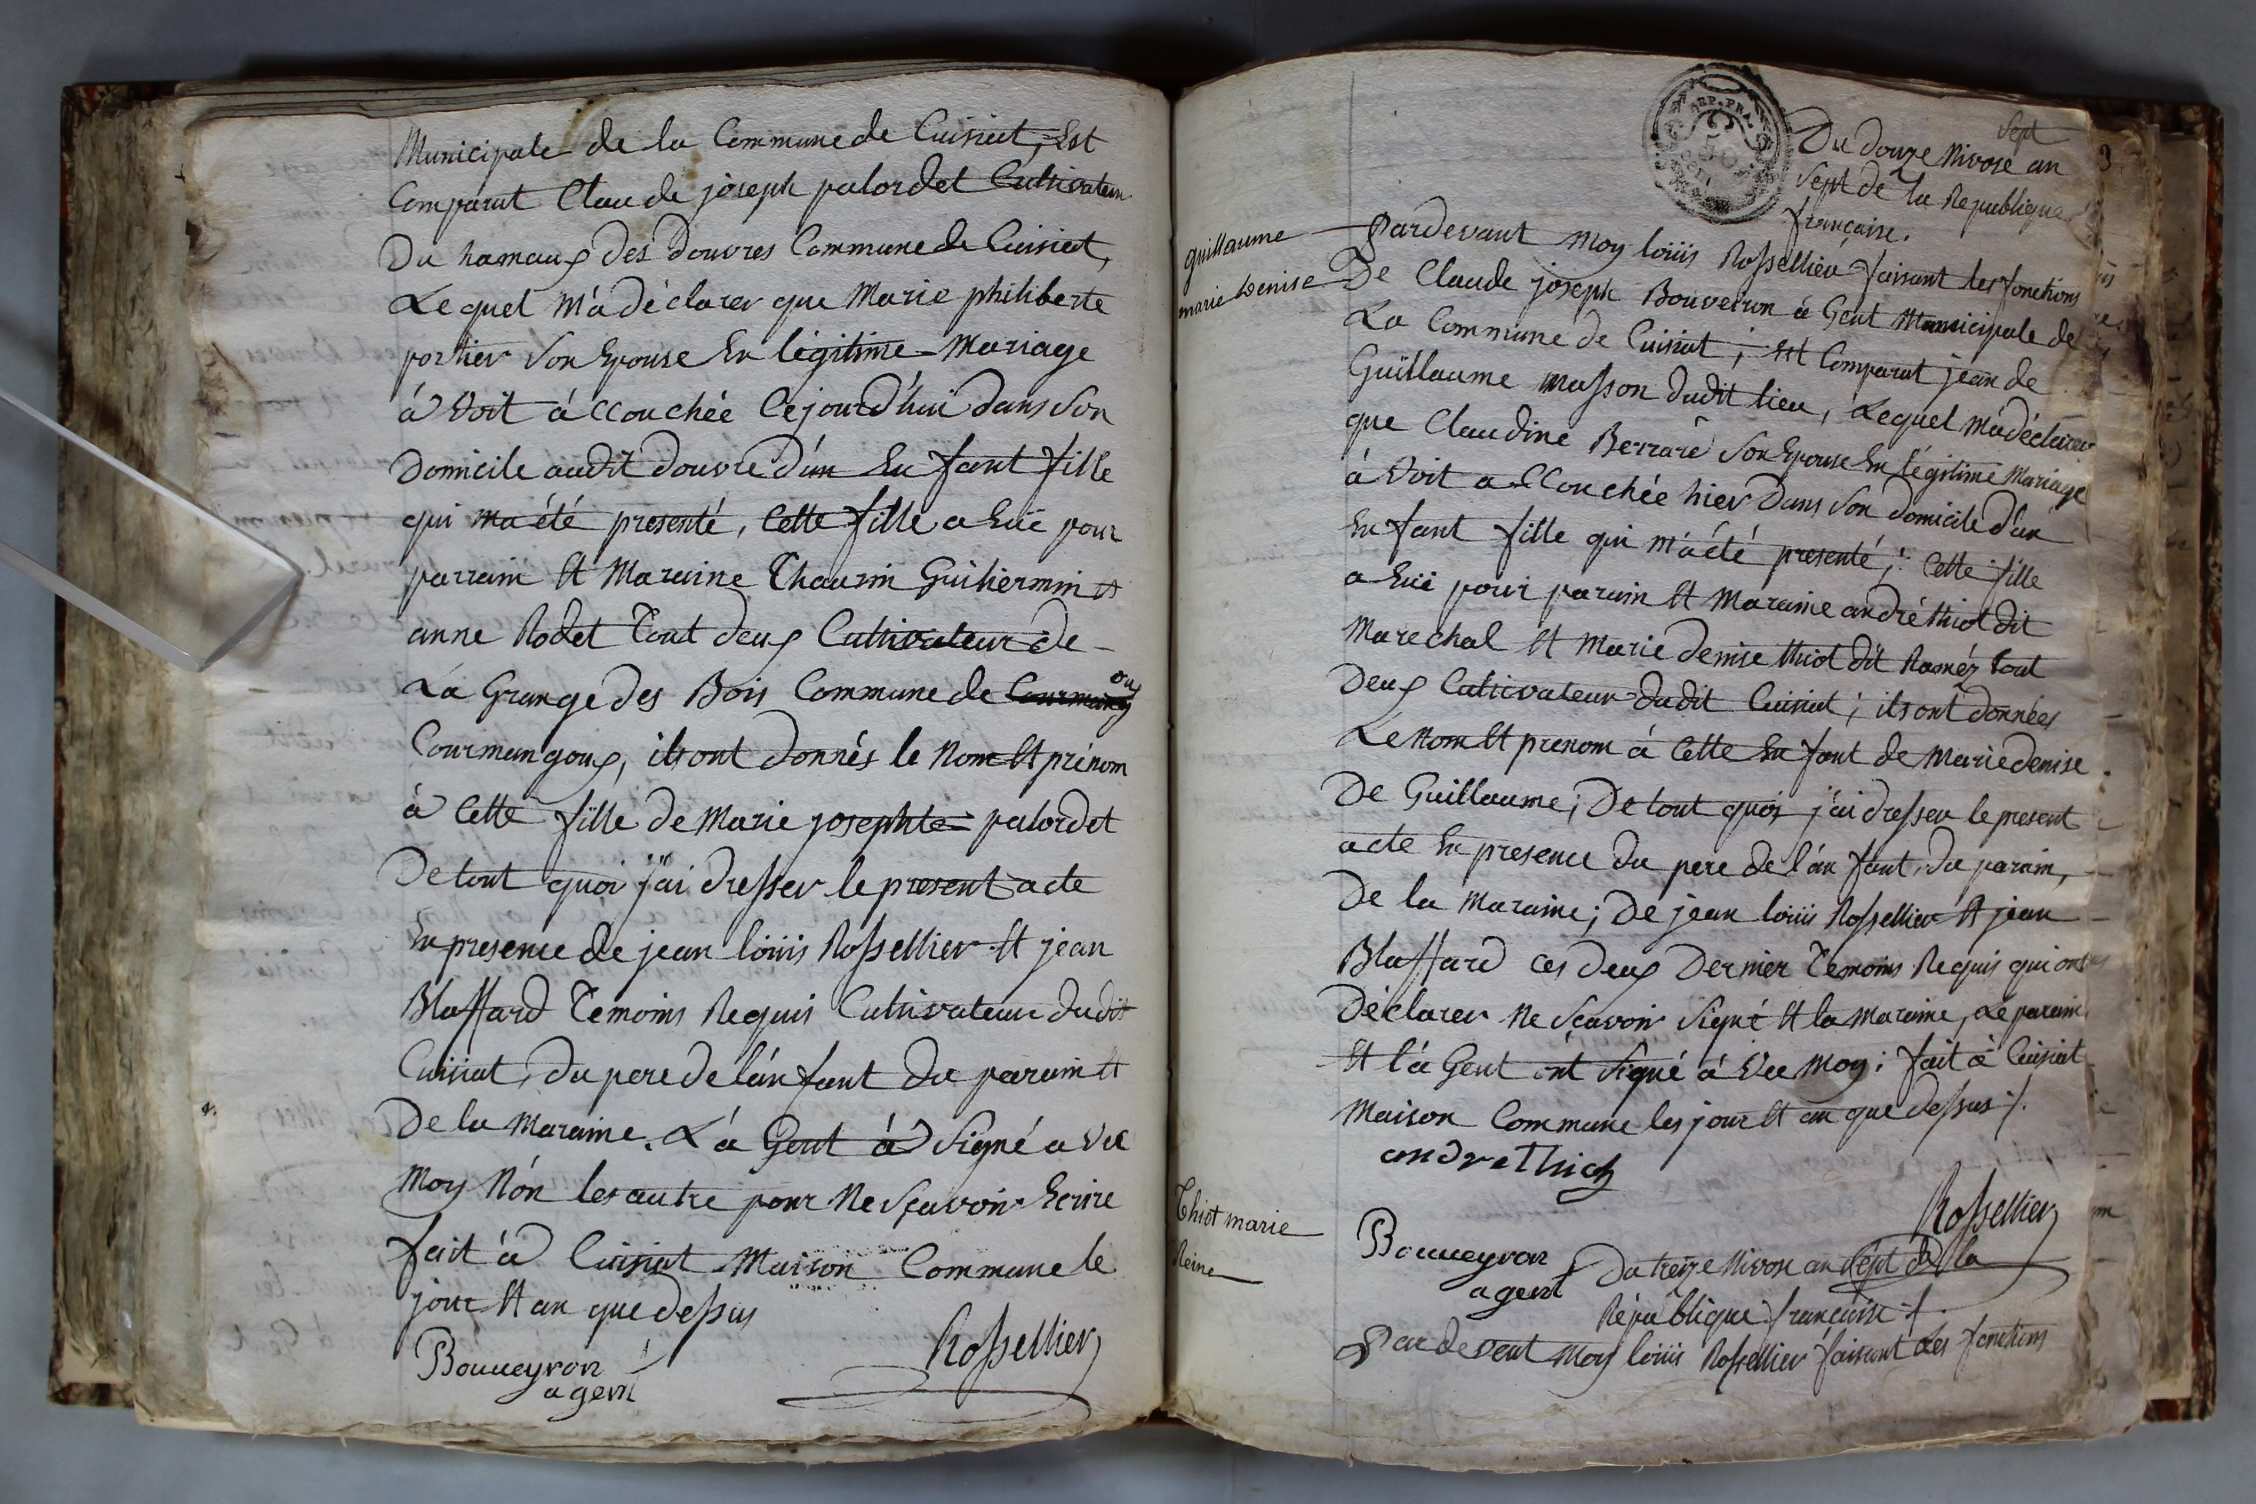 Municipale de la Commune de Cuisiat, Est
Comparut Claude joseph palordet Cultivateur
Du hamaux des Douvres Commune de Cuisiat,
Lequel m'a déclarer que Marie philiberte
portier Son Epouse En légitime Mariage
á Voit áccouchée Cejourd'hui dans Son
Domicile audit douvre d'un Enfant fille
qui ma été presenté, Cette fille a Euë pour
parrain Et Maraine Thaurin Guihermin et
anne Rodet Tout deux Cultivateur de
La Grange des Bois Commune de
Courmangoux, ils ont donnés le Nom Et prénom
á Cette fille de Marie josephte palordet
De tout quoi j'ai dresser le present acte
En presence de jean loüis Rossellier Et jean
Blaffard Temoins Requis Cultivateur dudit
Cuisiat, du pere de l'ánfant du parain Et
De la Maraine. L'á Gent á Signé a Vec
Moy Nón les autre pour Ne Sçavoir Ecrire
fait á Cuisiat Maison Commune le
jour Et an que dessus
Bouveyron
agent
Rossellier
3
Sept
Du douze Nivose an
Sept de la Republique
française.
guillaume
marie Denise
Pardevant Moy loüis Rossellier faisant les fonctions
De Claude joseph Bouveiron á Gent Municipale de
La Commune de Cuisiat; Est Comparut jean de
Guillaume masson dudit lieu, Lequel m'a déclarer
que Claudine Berrare Son Epouse En légitime Mariage
á Voit accouchée hier Dans Son domicile d'un
Enfant fille qui m'a été presenté; Cette fille
a Euë pour parain Et Maraine andré thiot dit
Marechal Et Marie denise thiot dit Raméz tout
Deux Cultivateur dudit Cuisiat; ils ont données
Le Nom Et prenom á Cette Enfant de Marie denise
De Guillaume; De tout quoi j'ai dresser le present
acte En presence du pere de l'ánfant, du parain,
De la Maraine; De jean loüis Rossellier Et jean
Blaffard Ces deux Dernier Temoins Requis qui ont
Déclarer Ne Sçavoir Signé Et la Maraine, Le parain
Et l'á Gent ont Signé á Vec Moy; fait á Cuisiat
Maison Commune les jour Et an que dessus ./.
andre Thiot
Rossellier
Bouveyron
agent
Thiot marie
Reine
Du treize Nivose an Sept de la
République française ./.
Pardevent Moy loüis Rossellier faisant Les fonctions